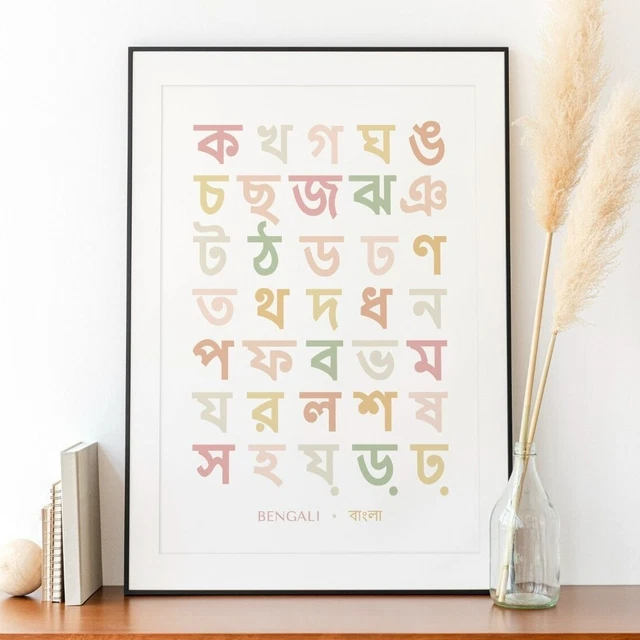 ক খ গ ঘ ঙ
চ ছ জ ঝ ঞ
ট ঠ ড ঢ ণ
ত থ দ ধ ন
প ফ ব ভ ম
য র ল শ ষ
স হ য় ড় ঢ়
BENGALI • বাংলা